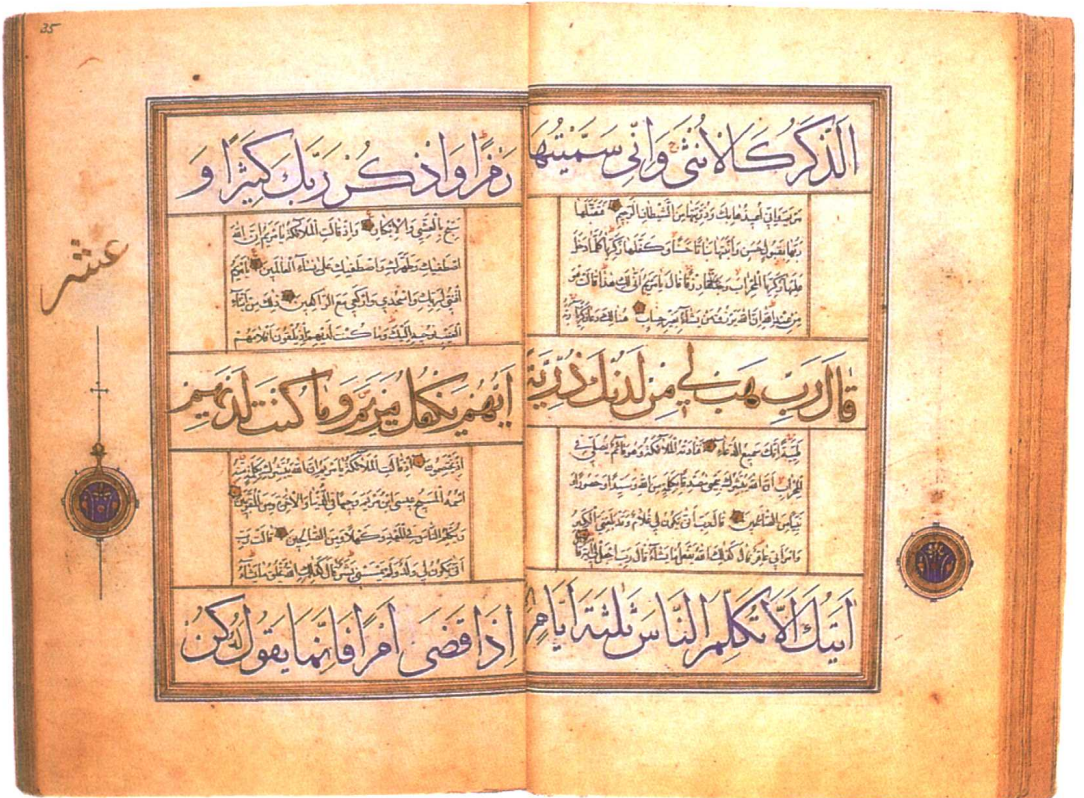 الذَّكَرُ كَالاُنْثى وَاِنّى سَمَّيْتُهَا
مريم وانى اعيذها بك وذريتها من الشيطان الرجيم فتقبلها
ربها بقبول حسن وانبتها نباتا حسنا وكفلها زكريا كلما دخل
عليها زكريا المحراب وجد عندها رزقا قال يا مريم انى لك هذا قالت هو
من عند الله ان الله يرزق من يشاء بغير حساب هنالك دعا زكريا ربه
قَالَ رَبِّ هَبْ لِي مِنْ لَدُنْكَ ذُرِّيَّةً
طيبة انك سميع الدعاء فنادته الملائكة وهو قائم يصلى فى
المحراب ان الله يبشرك بيحيى مصدقا بكلمة من الله وسيدا وحصورا و
نبيا من الصالحين قال رب انى يكون لى غلام وقد بلغنى الكبر
وامراتى عاقر قال كذلك الله يفعل ما يشاء قال رب اجعل لى اية قا
اٰيَتُكَ اَلَّا تُكَلِّمَ النَّاسَ ثَلٰثَةَ اَيَّامٍ
35
رَمْزًا وَاذْكُرْ رَبَّكَ كَثِيْرًا وَ
سبح بالعشى والابكار واذ قالت الملائكة يا مريم ان الله
اصطفيك وطهرك واصطفيك على نساء العالمين يا مريم
اقنتى لربك واسجدى واركعى مع الراكعين ذلك من انباء
الغيب نوحيه اليك وما كنت لديهم اذ يلقون اقلامهم
اَيُّهُمْ يَكْفُلُ مَرْيَمَ وَمَا كُنْتَ لَدَيْهِمْ
اذ يختصمون اذ قالت الملائكة يا مريم ان الله يبشرك بكلمة منه
اسمه المسيح عيسى ابن مريم وجيها فى الدنيا والاخرة ومن المقربين
ويكلم الناس فى المهد وكهلا ومن الصالحين قالت رب
انى يكون لى ولد ولم يمسسنى بشر قال كذلك الله يخلق ما يشاء
اِذَا قَضٰى اَمْرًا فَاِنَّمَا يَقُولُ لَهُ كُنْ
عشر